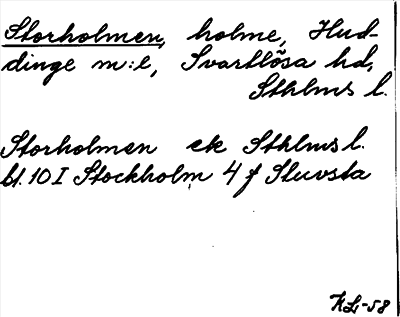 Storholmen, holme, Hud-
dinge m:e, Svartlösa hd,
Sthlms l.
Storholmen ek Sthlms l.
bl. 10 I Stockholm 4 f Stuvsta
KL-58